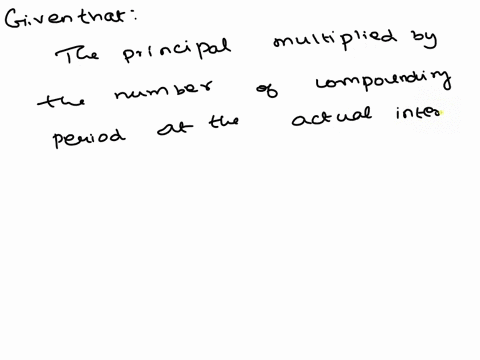 Given that:
The principal multiplied by
the number of compounding
period at the actual inter